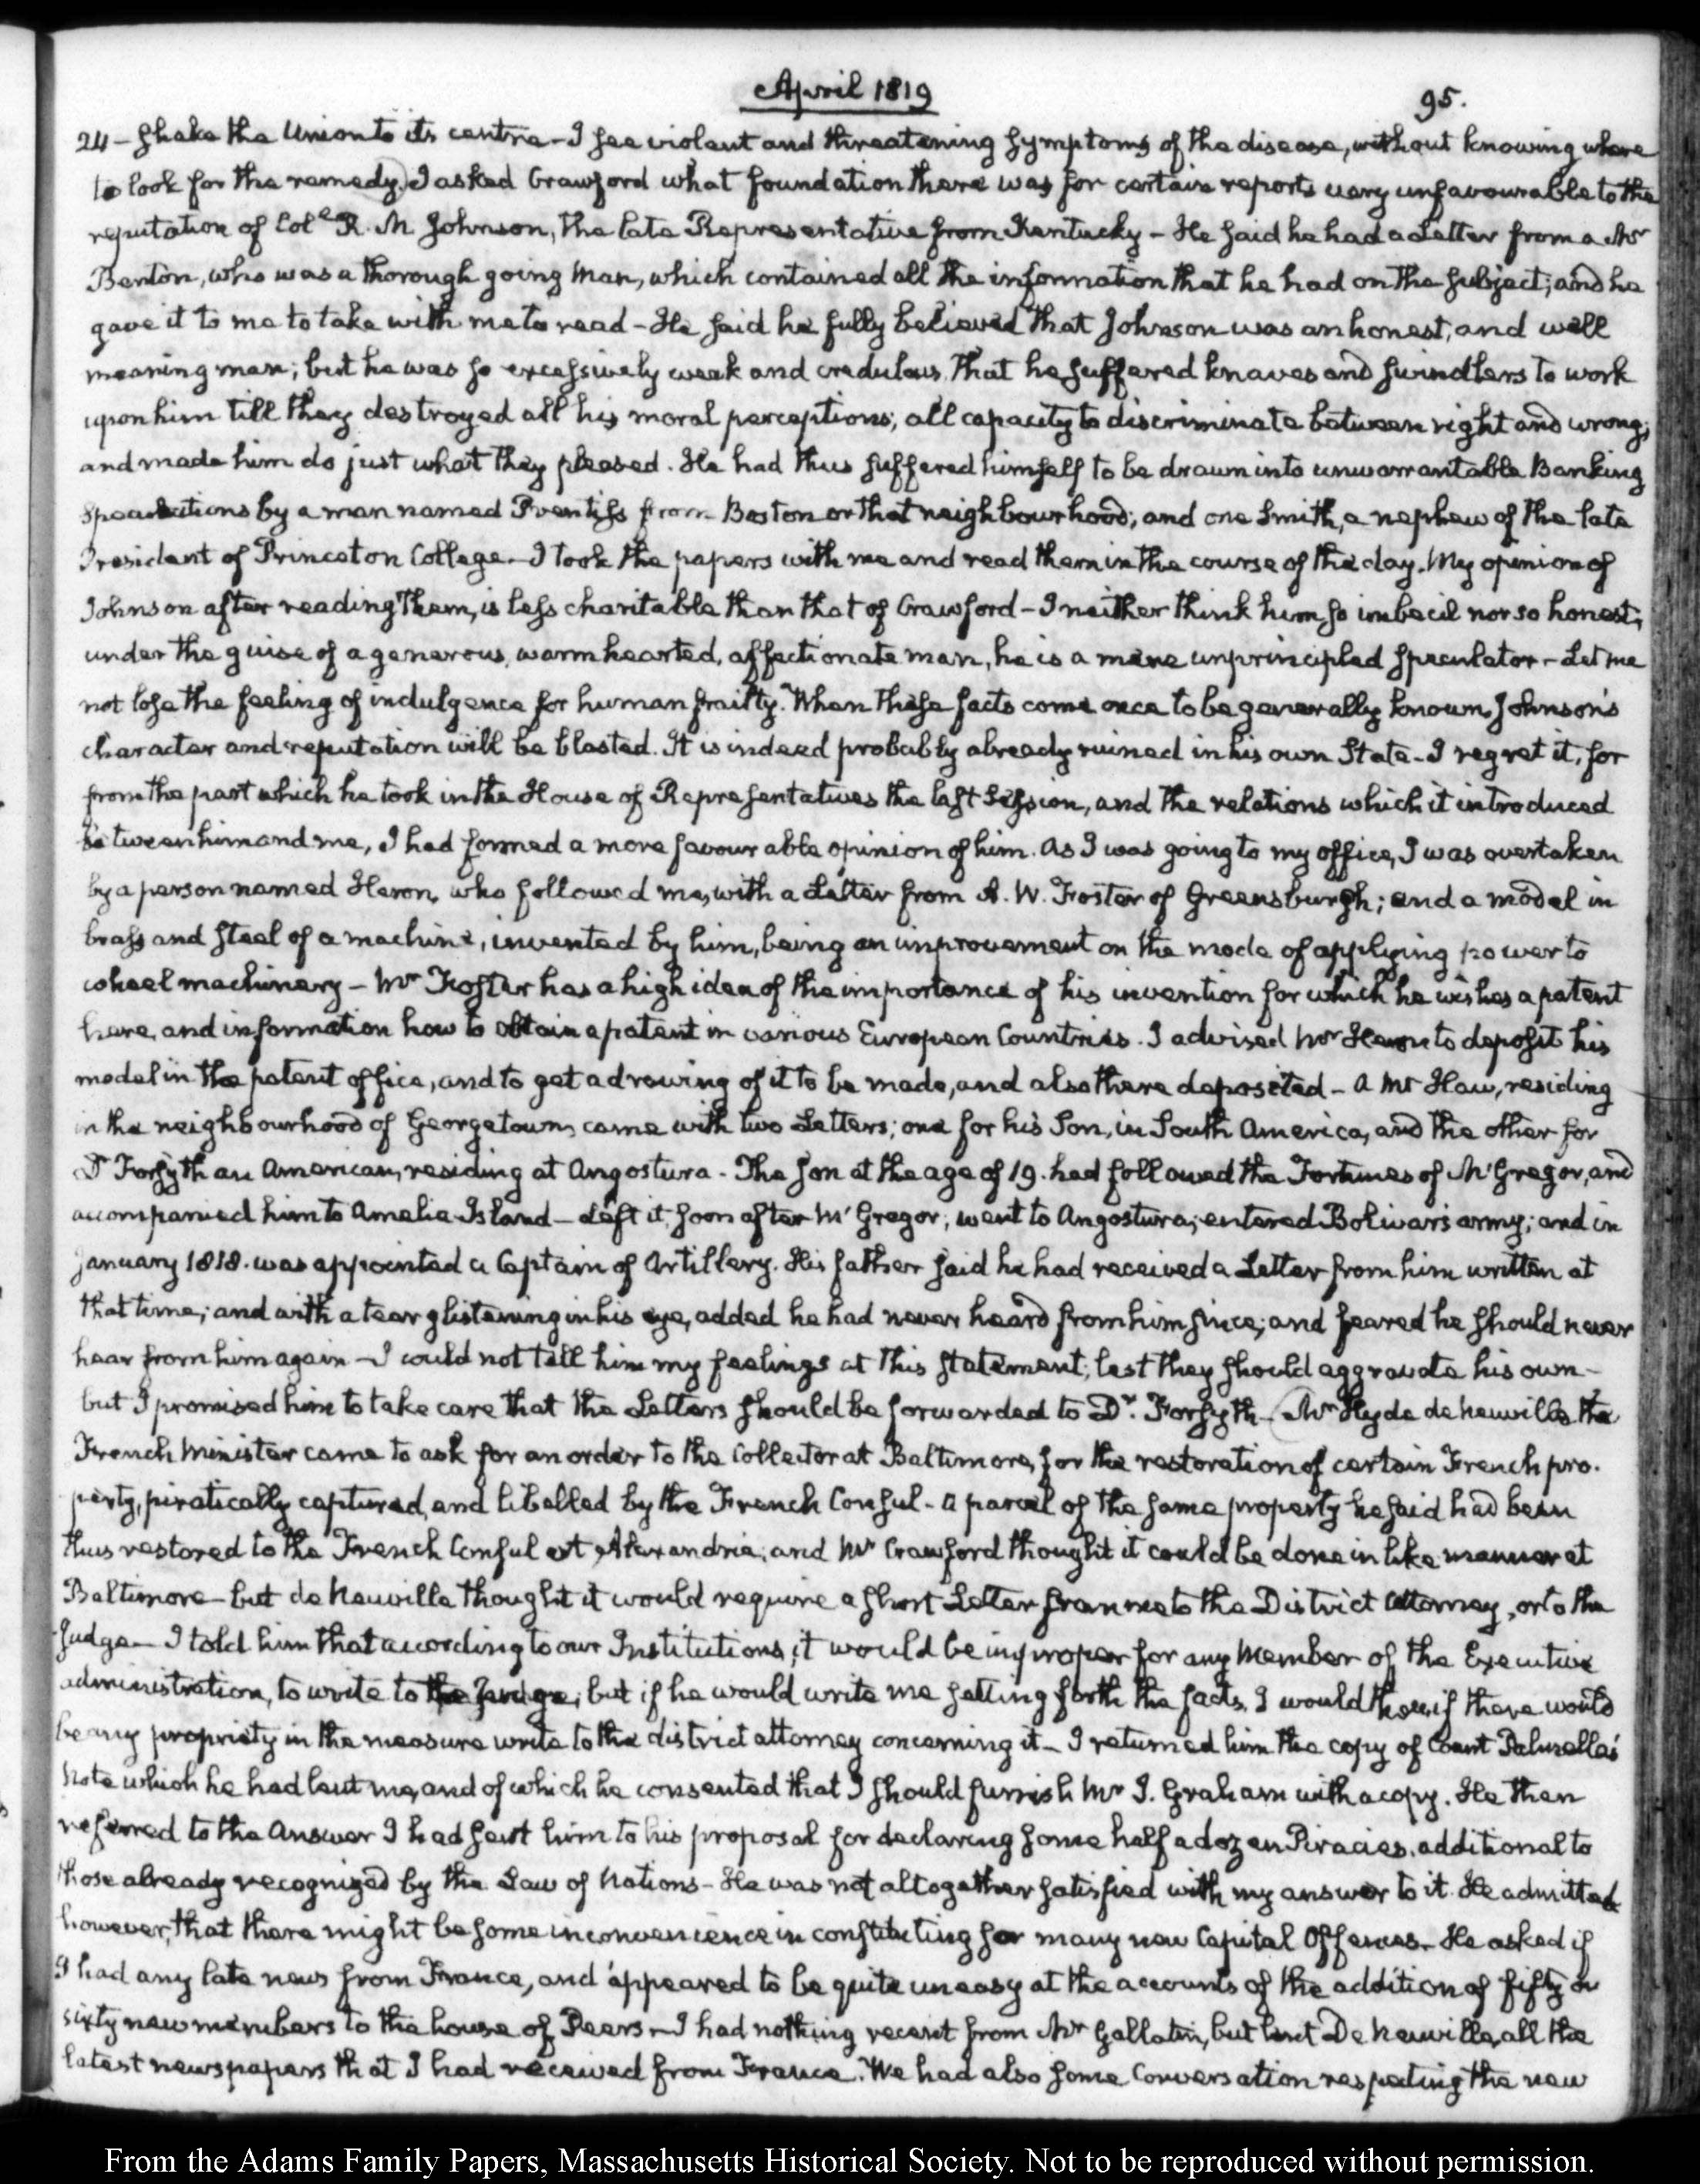 April 1819
95.
24 – shake the Union to its centre – I see violent and threatening symptoms of the disease, without knowing where
to look for the remedy. I asked Crawford what foundation there was for certain reports very unfavourable to the
reputation of Coll. R. M. Johnson, the late Representative from Kentucky – He said he had a Letter from a Mr
Benton, who was a thorough going man, which contained all the information that he had on the subject; and he
gave it to me to take with me to read – He said he fully believed that Johnson was an honest, and well
meaning man; but he was so excessively weak and credulous, that he suffered knaves and swindlers to work
upon him till they destroyed all his moral perceptions; all capacity to discriminate between right and wrong;
and made him do just what they pleased. He had thus suffered himself to be drawn into unwarrantable Banking
speculations by a man named Prentiss from Boston or that neighbourhood; and one Smith, a nephew of the late
President of Princeton College – I took the papers with me and read them in the course of the day. My opinion of
Johnson after reading them, is less charitable than that of Crawford – I neither think him so imbecil nor so honest;
under the guise of a generous, warm hearted, affectionate man, he is a mere unprincipled speculator – Let me
not lose the feeling of indulgence for human frailty. When these facts come once to be generally known, Johnson's
character and reputation will be blasted. It is indeed probably already ruined in his own State – I regret it, for
from the part which he took in the House of Representatives the last Session, and the relations which it introduced
between him and me, I had formed a more favourable opinion of him. As I was going to my office, I was overtaken
by a person named Heron, who followed me, with a Letter from A. W. Foster of Greensburgh; and a model in
brass and steel of a machine, invented by him, being an improvement on the mode of applying power to
wheel machinery – Mr Foster has a high idea of the importance of his invention for which he wishes a patent
here, and information how to obtain a patent in various European Countries. I advised Mr Heron to deposit his
model in the patent office, and to get a drawing of it to be made, and also there deposited – A Mr Haw, residing
in the neighbourhood of Georgetown, came with two Letters; one for his Son, in South America, and the other for
Dr Forsyth an American, residing at Angostura. The son at the age of 19. had followed the Fortunes of McGregor, and
accompanied him to Amelia Island – left it, soon after McGregor; went to Angostura; entered Bolivar's army; and in
January 1818. was appointed a Captain of Artillery. His father said he had received a Letter from him written at
that time; and with a tear glistening in his eye, added he had never heard from him since; and feared he should never
hear from him again – I could not tell him my feelings at this statement, lest they should aggravate his own –
but I promised him to take care that the Letters should be forwarded to Dr. Forsyth – Mr Hyde de Neuville the
French Minister came to ask for an order to the Collector at Baltimore, for the restoration of certain French pro-
perty, piratically captured, and libelled by the French Consul – A parcel of the same property he said had been
thus restored to the French Consul at Alexandria; and Mr Crawford thought it could be done in like manner at
Baltimore – but de Neuville thought it would require a short Letter from me to the District Attorney, or to the
Judge – I told him that according to our Institutions, it would be improper for any Member of the Executive
administration, to write to the Judge; but if he would write me setting forth the facts, I would then, if there would
be any propriety in the measure write to the district attorney concerning it – I returned him the copy of Count Palmella's
Note which he had lent me, and of which he consented that I should furnish Mr J. Graham with a copy. He then
referred to the Answer I had sent him to his proposal for declaring some half a dozen Piracies, additional to
those already recognized by the Law of Nations – He was not altogether satisfied with my answer to it. He admitted
however, that there might be some inconvenience in constituting so many new Capital Offences – He asked if
I had any late news from France, and appeared to be quite uneasy at the accounts of the addition of fifty or
sixty new members to the house of Peers – I had nothing recent from Mr Gallatin, but lent De Neuville, all the
latest newspapers that I had received from France. We had also some Conversation respecting the new
From the Adams Family Papers, Massachusetts Historical Society. Not to be reproduced without permission.